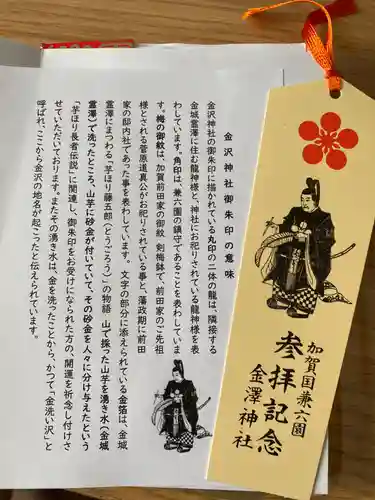 金沢神社御朱印の意味
金沢神社の御朱印に描かれている丸印の二体の龍は、隣接する
金城霊澤に住む龍神様と、神社にお祀りされている龍神様を表
わしています。角印は、兼六園の鎮守であることを表わしていま
す。梅の御紋は、加賀前田家の御紋、剣梅鉢で、前田家のご先祖
様とされる菅原道真公がお祀りされている事と、藩政期に前田
家の邸内社であった事を表わしています。文字の部分に添えられている金箔は、金城
霊澤にまつわる「芋ほり藤五郎(とうごろう)」の物語 山で採った山芋を湧き水(金城
霊澤)で洗ったところ、山芋に砂金が付いていて、その砂金を人々に分け与えたという
「芋ほり長者伝説」に関連し、御朱印をお受けになられた方の、開運を祈念し付けさ
せていただいております。またその湧き水は、金を洗ったことから、かつて「金洗い沢」と
呼ばれ、ここから金沢の地名が起こったと伝えられています。
加賀国兼六園
参拝記念
金澤神社